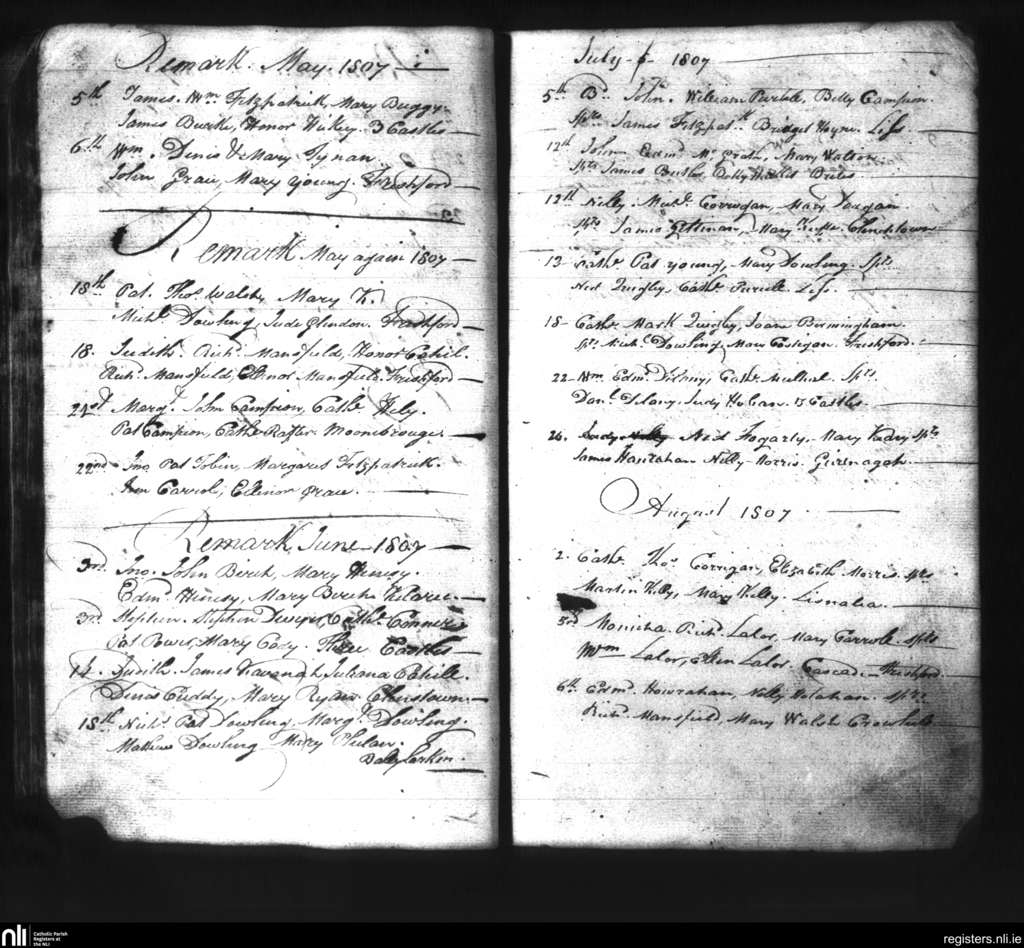 Remark. May. 1807
5th James. Wm Fitzpatrick, Mary Buggy.
James Burke, Honor Hickey. 3 Castles
6th Wm. Denis & Mary Tynan.
John Grace, Mary Young. Freshford
Remark May again 1807
18th Pat. Thos Walsh, Mary K.
Michl Dowling, Jude Glindon. Freshford
18. Judith. Richd Mansfield, Honor Cahil.
Richd Mansfield, Ellinor Mansfield. Freshford
21st Margt John Campion, Cathe
Pat Campion, Cathe Rafter.
22nd Jno Pat Tobin, Margaret Fitzpatrick.
Carrol, Ellinor Grace.
Remark, June 1807
3rd. Jno. John Birch, Mary Henesy.
Edmd Henesy, Mary Birch
3rd. Stephen. Stephen Dwyer, Cathe
Pat Power, Mary Cody. Three Castles
14. Judith. James Kavanagh, Juliana Cahill.
Denis Cuddy, Mary Ryan.
18th Nichs Pat Dowling, Margt Dowling.
Mathew Dowling Mary Phelan.
Larkin.
July 1807
5th B. John. William Purtell, Betty Campion.
Spts James Fitzpatk Bridget
12th John Edmd Mc Grath, Mary Walton
Spts James Butler,
12th Nelly. Michl Corrigan, Mary
Spts James
13 Cathe Pat Young, Mary Dowling. Spts
Ned Quigley, Cathe Purtell.
18 Cathe Mark Quigley, Joana Birmingham.
Spts Michl Dowling, Mary Costigan. Freshford.
22 Wm Edmd Delany, Cathe Mulhal. Spts.
Danl Delany. Judy Castles.
26. Ned Fogarty. Mary Spts
James Hanrahan Nelly Morris.
August 1807
2. Cathe Thos Corrigan, Elizabeth Morris. Spts
Martin Kelly, Mary Kelly. Lisnalia.
5rd Monicha. Richd Lalor, Mary Carroll Spts
Wm Lalor, Ellen Lalor. Cascade Freshford
6th Edmd. Nelly Spts
Richd Mansfield, Mary Walsh
nli
Catholic Parish
Registers at
the NLI
registers.nli.ie